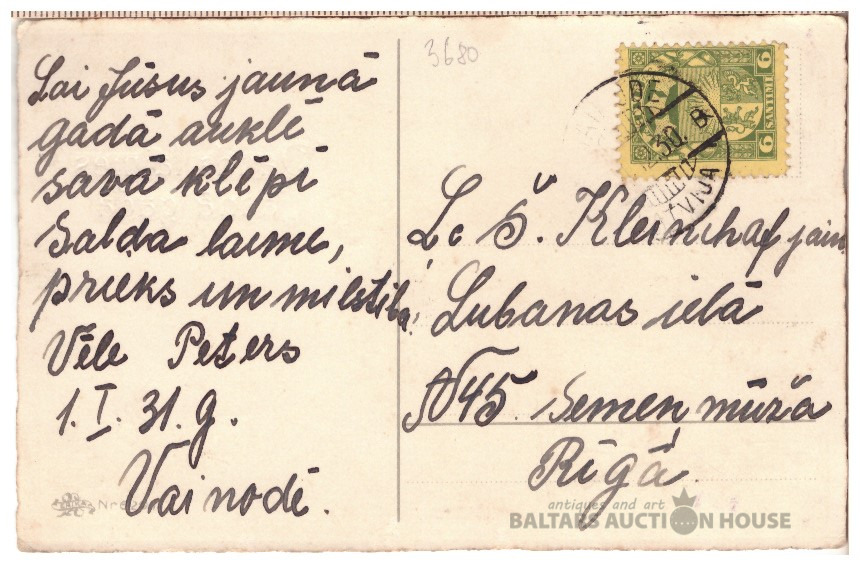 3680
Lai Jūsus jaunā
gadā auklē
savā klēpī
Salda laime,
prieks un milstība!
Vēle Peters
1. I. 31. g.
Vaiņodē.
6 SANTIMI 6
30. B
Š. Kleinchafjam
Lubanas ielā
N45. Semen mūža
Rīgā
antiques and art
BALTARS AUCTION HOUSE